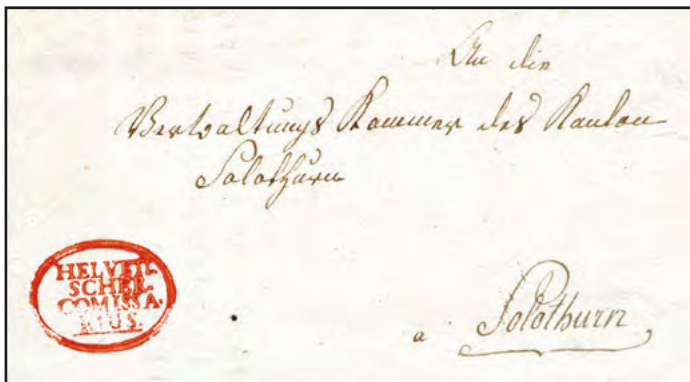 An die
Verwaltungs Kammer des Kanton
Solothurn
HELVETI-
SCHER
COMISSA-
RIUS.
a Solothurn